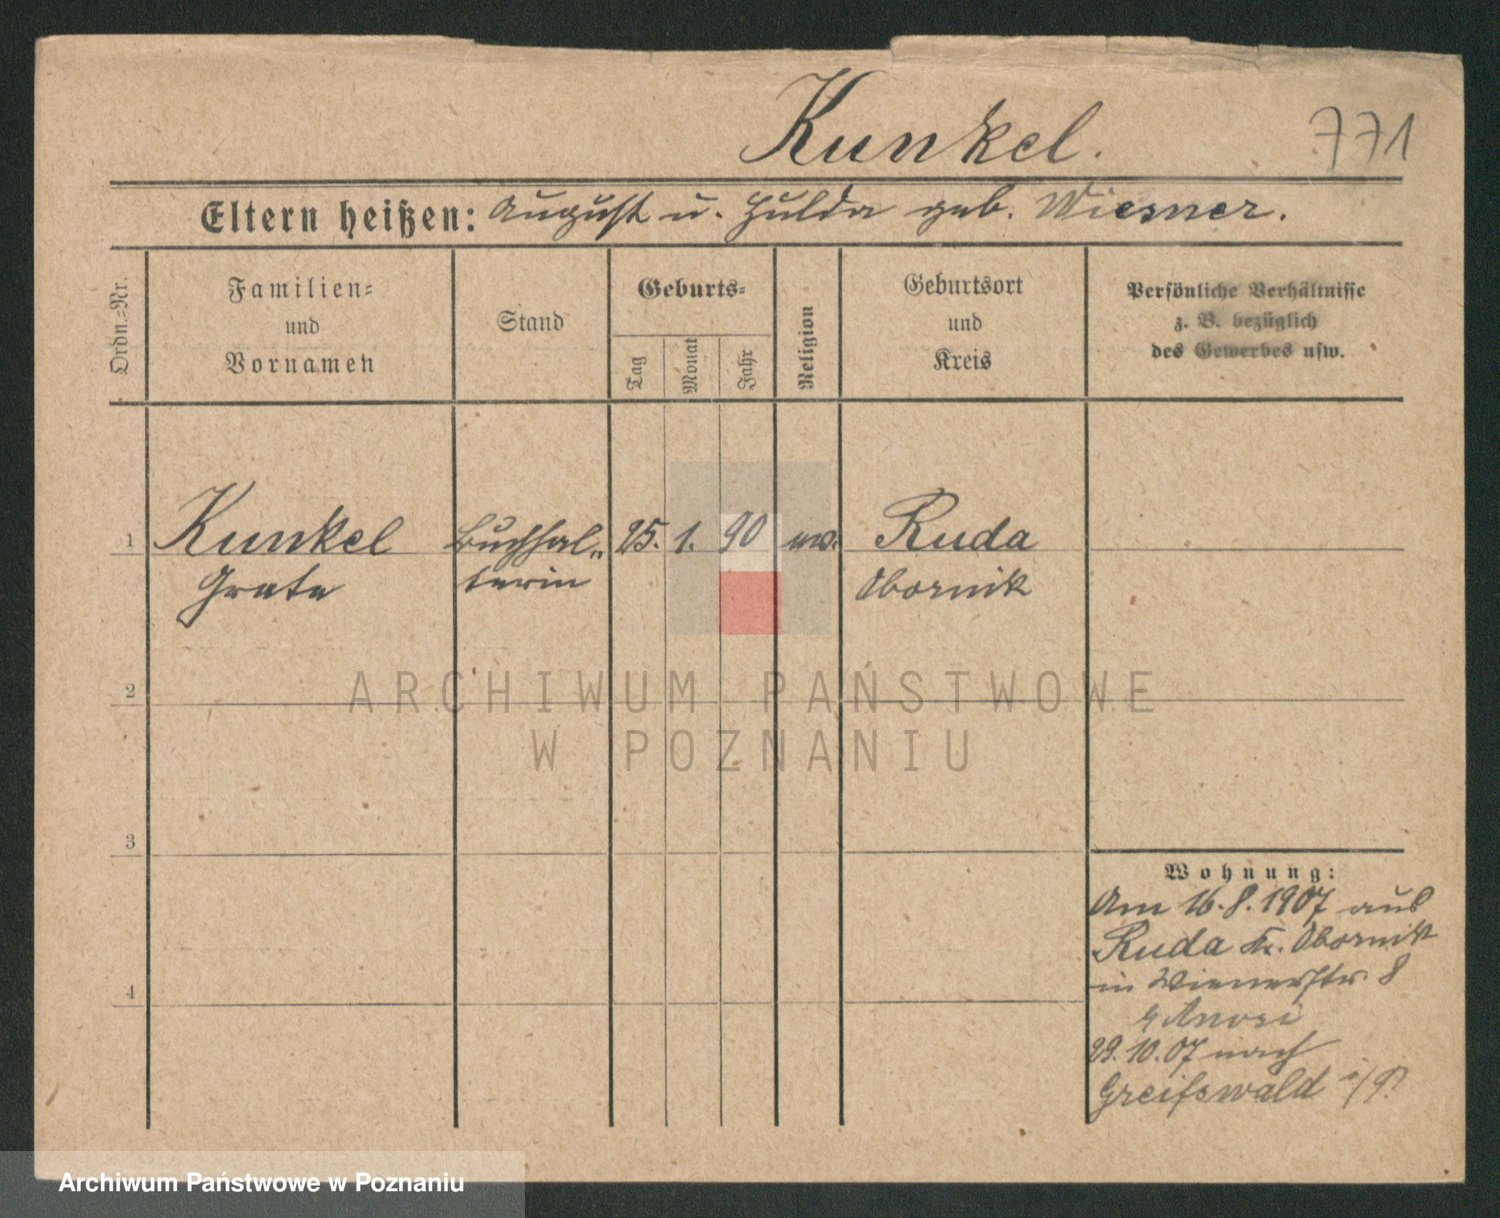 Kunkel.
771
Eltern heißen: August u. Hulda geb. Wiesner.
Ordn.=Nr.
Familien=
und
Vornamen
Stand
Geburts=
Tag
Monat
Jahr
Religion
Geburtsort
und
Kreis
Persönliche Verhältnisse
z. B. bezüglich
des Gewerbes usw.
1 Kunkel Buchhal„ 25. 1. 90 ev. Ruda
Grete terin Obornik
2
ARCHIWUM PAŃSTWOWE
W POZNANIU
3
Wohnung:
Am 16.8.1907 aus
Ruda Kr. Obornik
in Wienerstr 8
4
29.10.07 nach
Greifswald i/P.
Archiwum Państwowe w Poznaniu